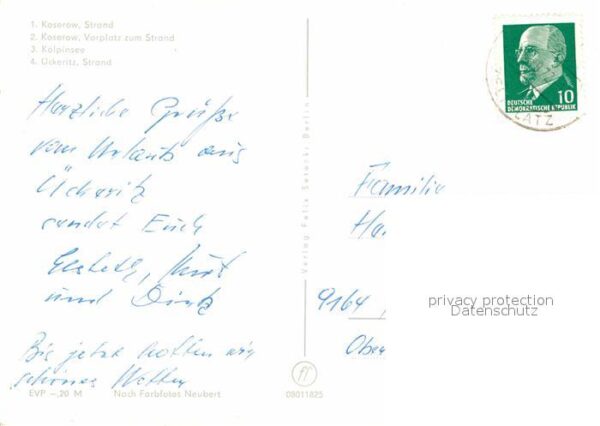 1. Koserow, Strand
2. Koserow, Vorplatz zum Strand
3. Kölpinsee
4. Ückeritz, Strand
Herzliche Grüße
vom Urlaub aus
Ückeritz
sendet Euch
Elsbeth, Kurt
und
Bis jetzt hatten wir
schönes Wetter
EVP –,20 M Nach Farbfotos Neubert
Verlag Felix Setecki Berlin
08011825
10
DEUTSCHE
DEMOKRATISCHE REPUBLIK
ATZ
Familie
Ha.
9164
Ober
privacy protection
Datenschutz